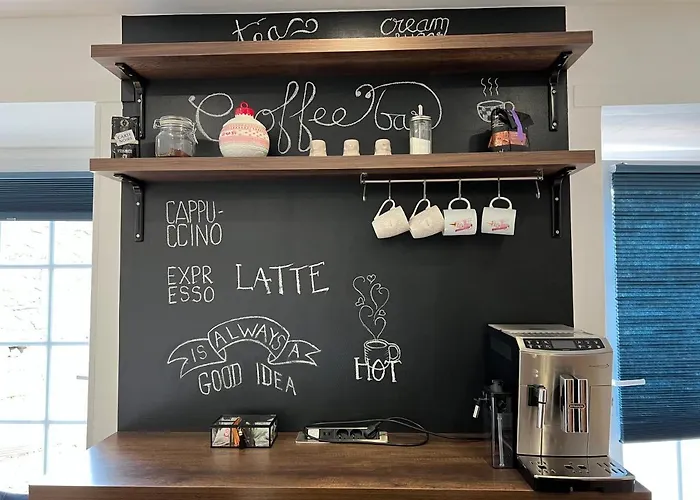 téa
cream
Coffee bar
CAPPU-
CCINO
EXPR
ESSO
LATTE
IS ALWAYS A
GOOD IDEA
HOT